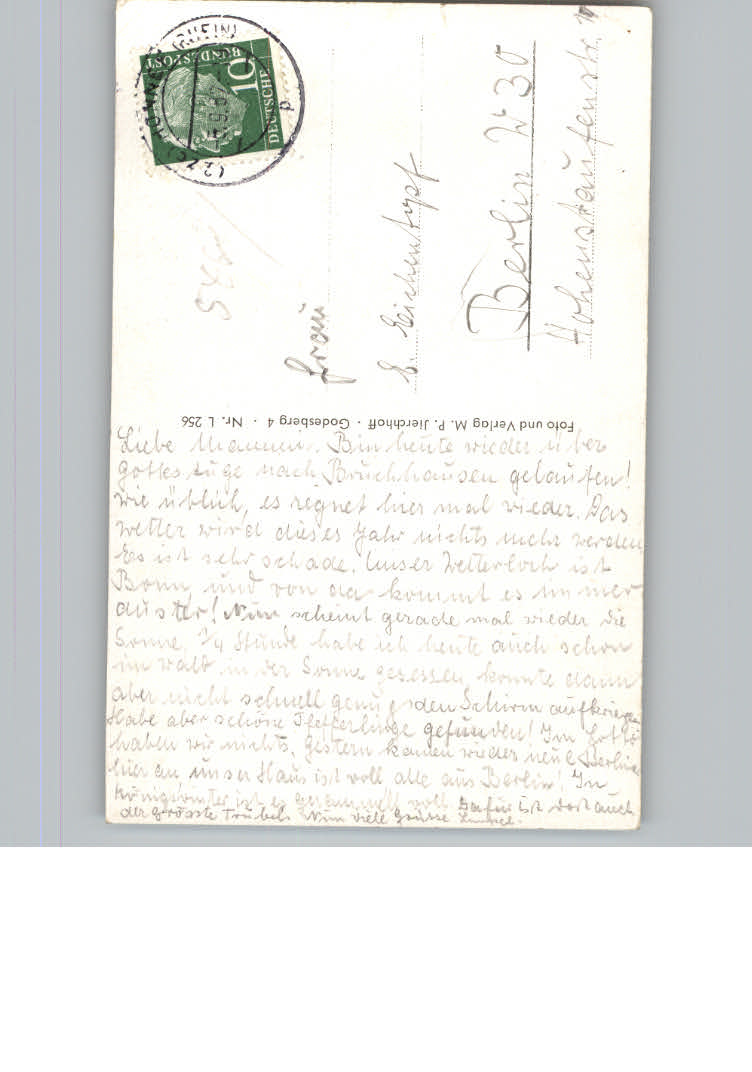 DEUTSCHE
BUNDESPOST
10
HONNEF (RHEIN)
(22c)
p
Frau
E. Eichentopf
Berlin W 30
Hohenstaufenstr.
Foto und Verlag M. P. Jierchhoff · Godesberg 4 · Nr. L 256
Liebe Mammi. Bin heute wieder über
gottes zuge nach Bruchhausen gelaufen!
wie üblich, es regnet hier mal wieder. Das
Wetter wird dieses Jahr nichts mehr werden
Es ist sehr schade. Unser Wetterloch ist
Bonn, und von da kommt es immer
duster! Nun scheint gerade mal wieder die
Sonne. 3/4 Stunde habe ich heute auch schon
im Wald in der Sonne gesessen, konnte dann
aber nicht schnell genug den Schirm aufkriegen
Habe aber schöne Pfefferlinge gefunden! Im Lotto
haben wir nichts. Gestern kamen wieder neue Berliner
hier an unser Haus ist voll alle aus Berlin! In
Königswinter ist es voll dafür ist dort auch
der grösste Trubel. Nun viele Grüsse